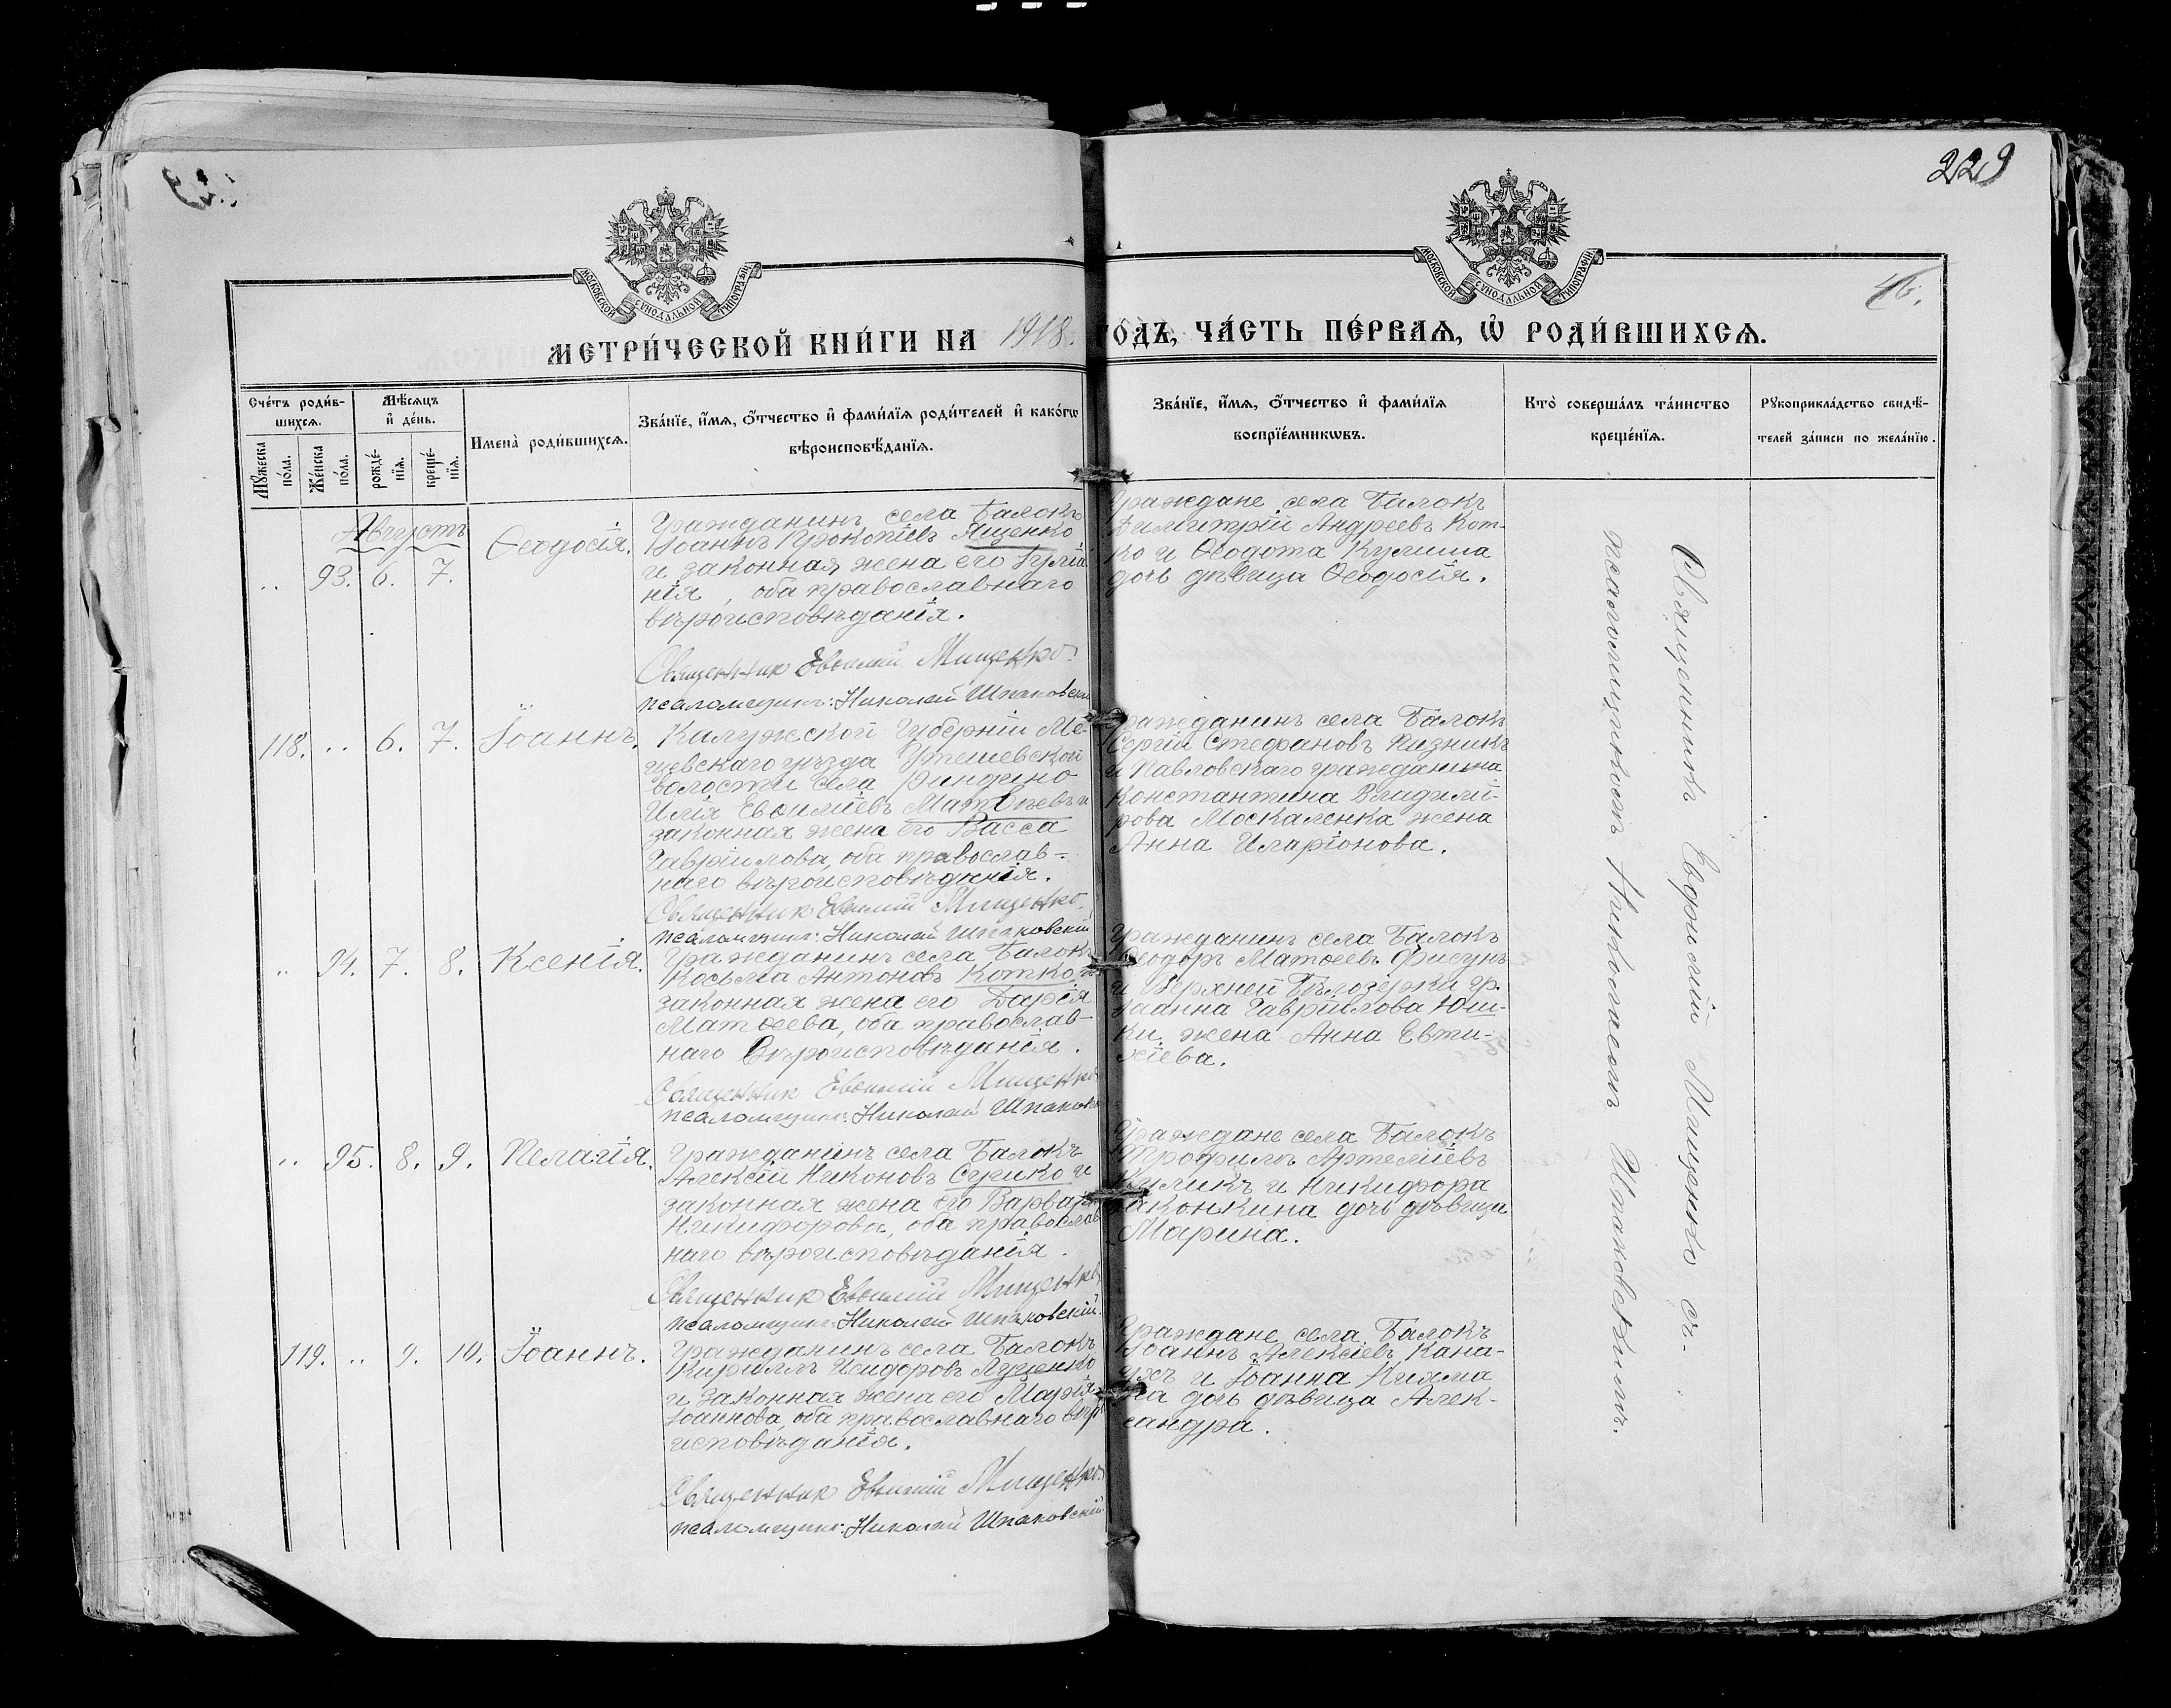 229
46.
МОСКОВСКОЙ СУНОДАЛЬНОЙ ТИПОГРАФІИ
МОСКОВСКОЙ СУНОДАЛЬНОЙ ТИПОГРАФІИ
МЕТРИ́ЧЕСКОЙ КНИ́ГИ НА 1918. ГОДЪ, ЧА́СТЬ ПЕ́РВАЯ, Ѽ РОДИ́ВШИХСЯ.
Сче́тъ роди́в-
шихся.
Му́жеска по́ла.
Же́нска по́ла.
Мѣ́сяцъ
и҆ де́нь.
рожде́-
нїя.
креще́-
нїя.
Имена̀ роди́вшихся.
Зва́нїе, и҆́мя, ѻ҆́тчество и҆ фами́лїя роди́телей и҆ како́гѡ
вѣроисповѣ́данїя.
Зва́нїе, и҆́мя, ѻ҆́тчество и҆ фами́лїя
воспрїе́мникѡвъ.
Кто̀ соверша́лъ та́инство
креще́нїя.
Рꙋкоприкла́дство свидѣ́-
телей за́писи по жела́нїю.
Августъ
.. 93. 6. 7.
Ѳеодосія.
Гражданинъ села Балокъ
Іоаннъ Прокопіевъ Ященко
и законная жена его Іуліа
нія, оба православнаго
вѣроисповѣданія.
Священник Евѳимій Мищенко.
псаломщикъ: Николай Шпаковскій
Граждане села Балокъ
Димитрій Андреевъ Кот-
ко и Ѳеодота Кулиша
дочь дѣвица Ѳеодосія.
118. .. 6. 7.
Іоаннъ.
Калужской Губерніи Ме-
щевскаго уѣзда Утешевской
волости села
Илія Евѳиміевъ Матвѣевъ и
законная жена его Васса
Гавріилова, оба православ-
наго вѣроисповѣданія.
Священник Евѳимій Мищенко.
псаломщикъ: Николай Шпаковскій
Гражданинъ села Балокъ
Сергій Стефановъ Пизникъ
и Павловскаго гражданина
Константина Владимі-
рова Москаленка жена
Анна Иларіонова.
.. 94. 7. 8.
Ксенія.
Гражданинъ села Балокъ
Косьма Антоновъ Котко и
законная жена его Дарія
Матѳеева, оба православ-
наго Вѣроисповѣданія.
Священник Евѳимій Мищенко
псаломщикъ: Николай Шпаковс
Гражданинъ села Балокъ
Ѳеодоръ Матѳеевъ Фисунъ
и Верхней Бѣлозерки гр.
Іоанна Гавріилова Юш-
ки жена Анна Евти-
хіева.
.. 95. 8. 9.
Пелагія.
Гражданинъ села Балокъ
Алексій Никоновъ Сушко и
законная жена его Варвара
Никифорова, оба православ
наго вѣроисповѣданія.
Священник Евѳимій Мищенко
псаломщикъ: Николай Шпаковскій.
Граждане села Балокъ
Трофимъ Артеміевъ
Куликъ и Никифора
Законкина дочь дѣвица
Марина.
119. .. 9. 10.
Іоаннъ.
Гражданинъ села Балокъ
Кириллъ Исидоровъ Луценко
и законная жена его Марія
Іоаннова оба православнаго вѣро
исповѣданія.
Священник Евѳимій Мищенко
псаломщикъ: Николай Шпаковскій
Граждане села Балокъ
Іоаннъ Алексіевъ Кана-
ухъ и Іоанна
дочь дѣвица Алек-
сандра.
Священникъ Евѳимій Мищенко съ
псаломщикомъ Николаемъ Шпаковскимъ.